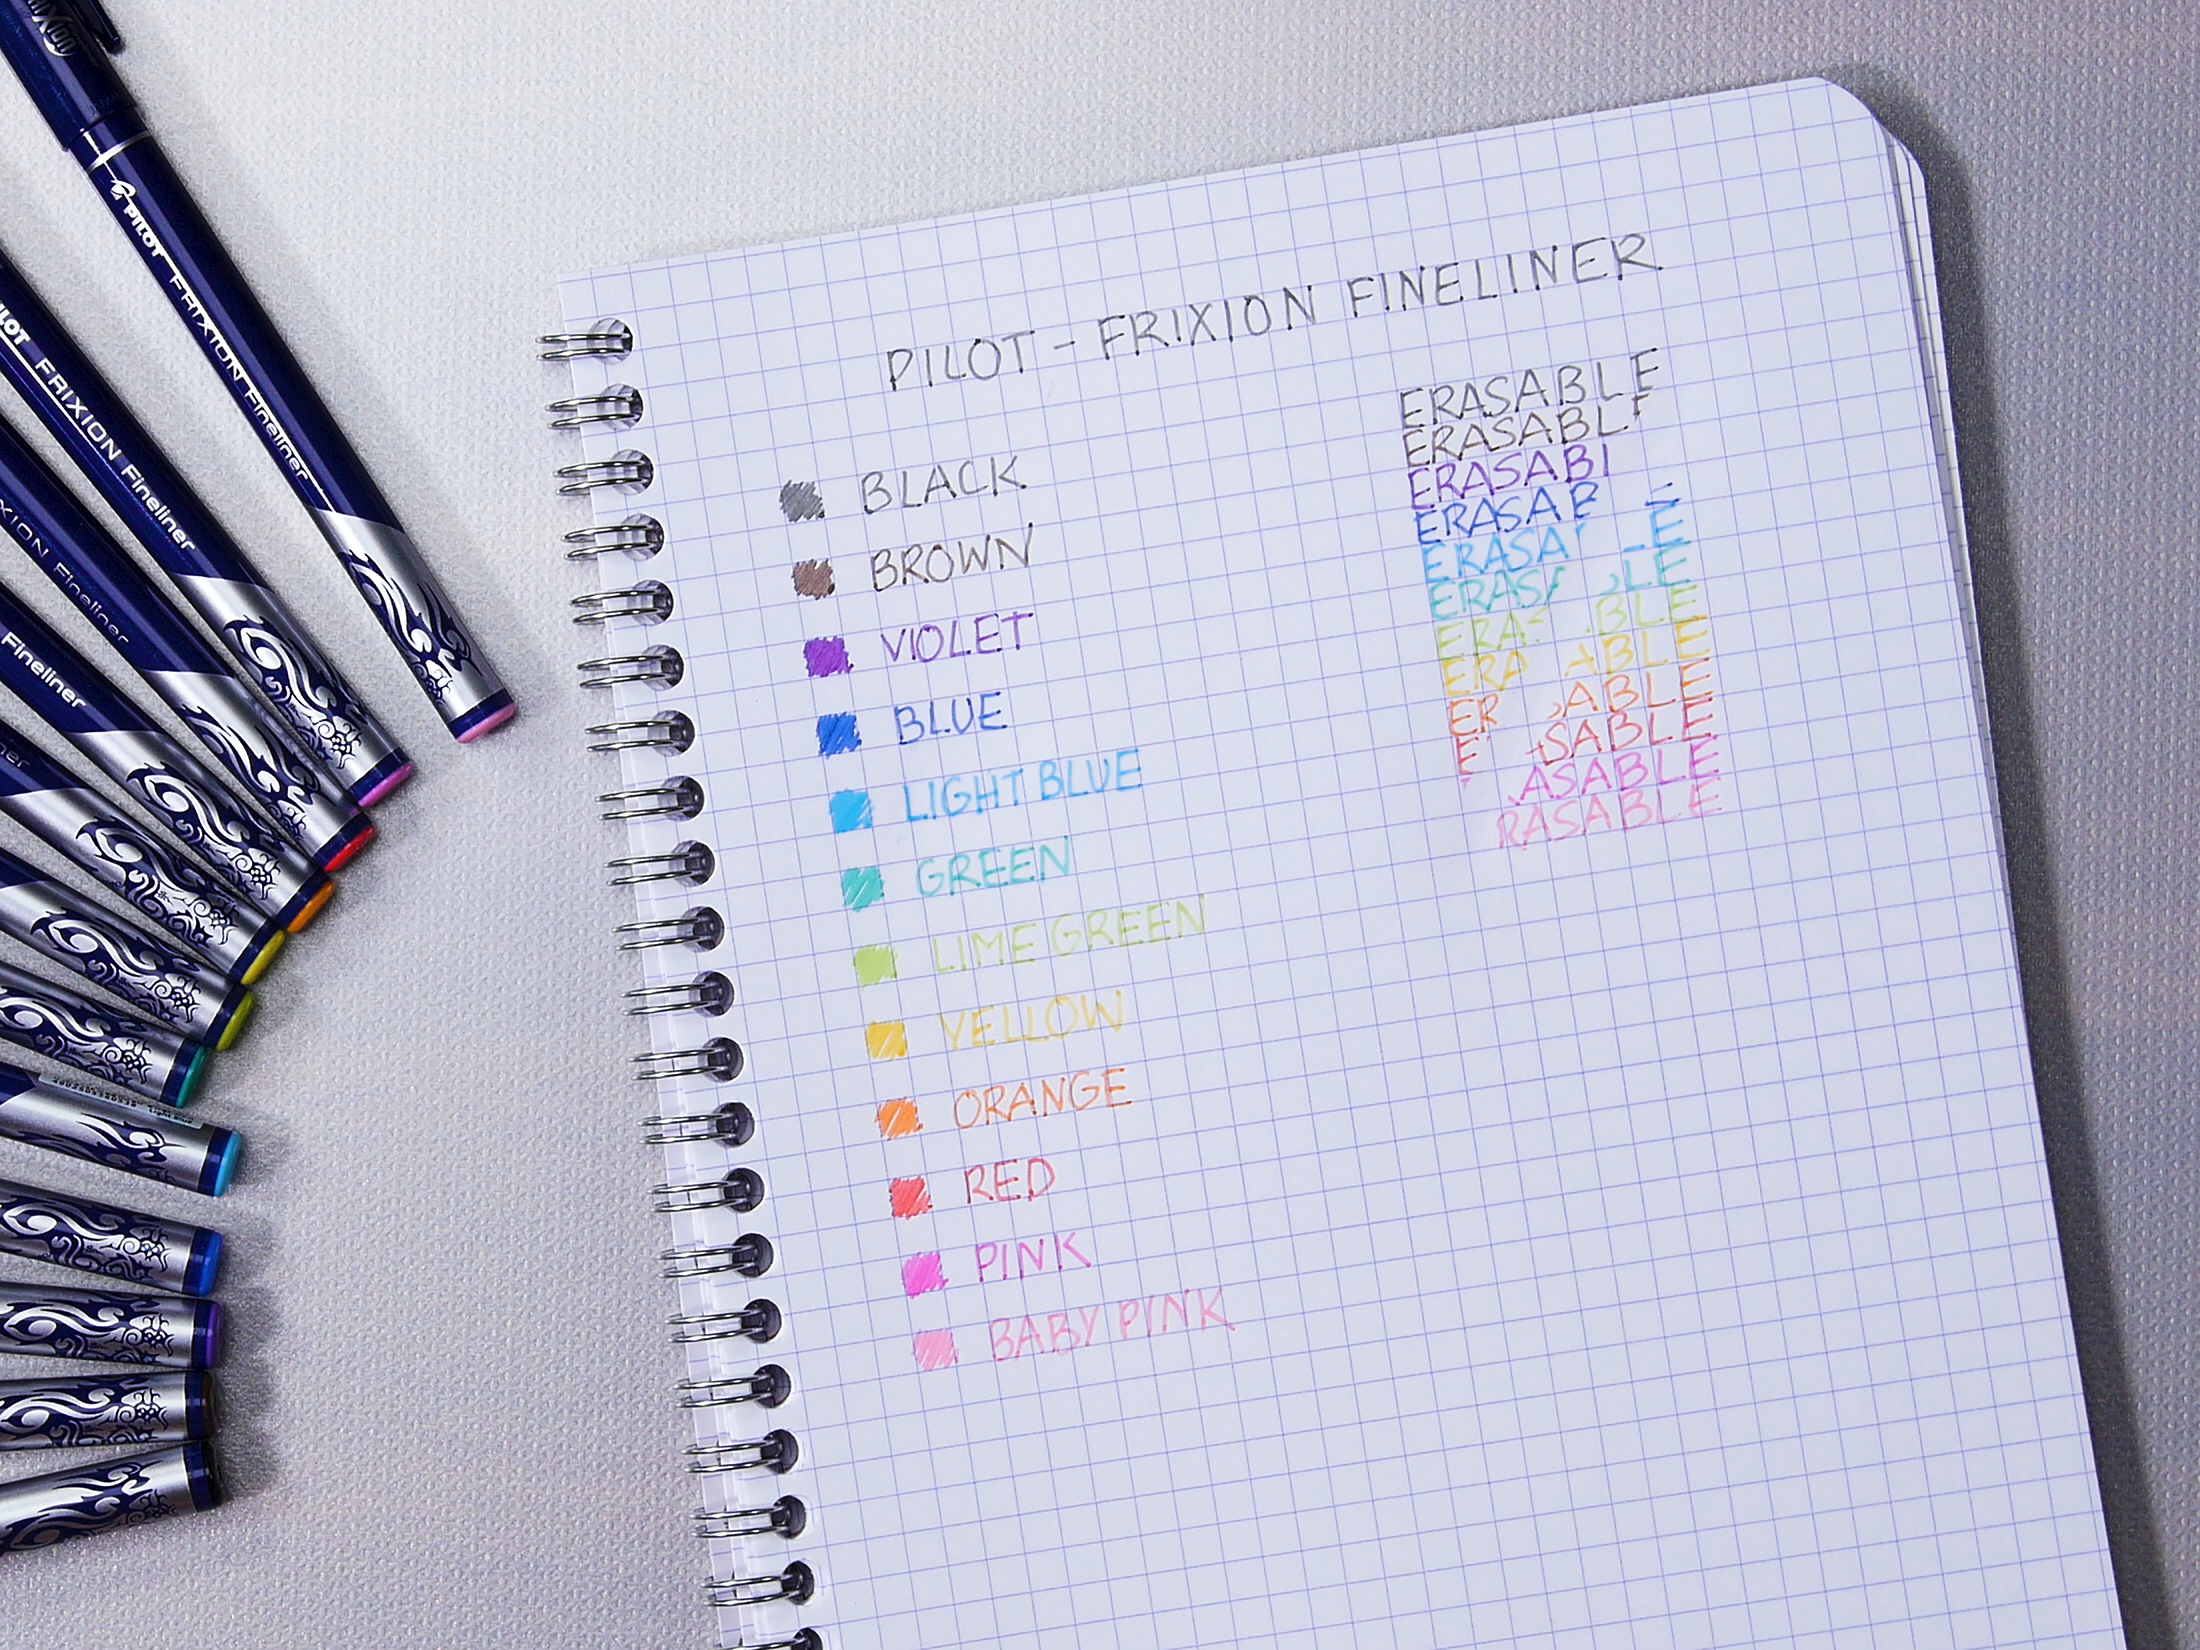 PILOT FRIXION Fineliner
PILOT FRIXION Fineliner
FRIXION Fineliner
Fineliner
PILOT - FRIXION FINELINER
BLACK
BROWN
VIOLET
BLUE
LIGHT BLUE
GREEN
LIME GREEN
YELLOW
ORANGE
RED
PINK
BABY PINK
ERASABLE
ERASABL
ERASAB
ERASA
ERASA E
ERAS LE
ERA BLE
ERA ABLE
ER ABLE
E SABLE
ASABLE
RASABLE